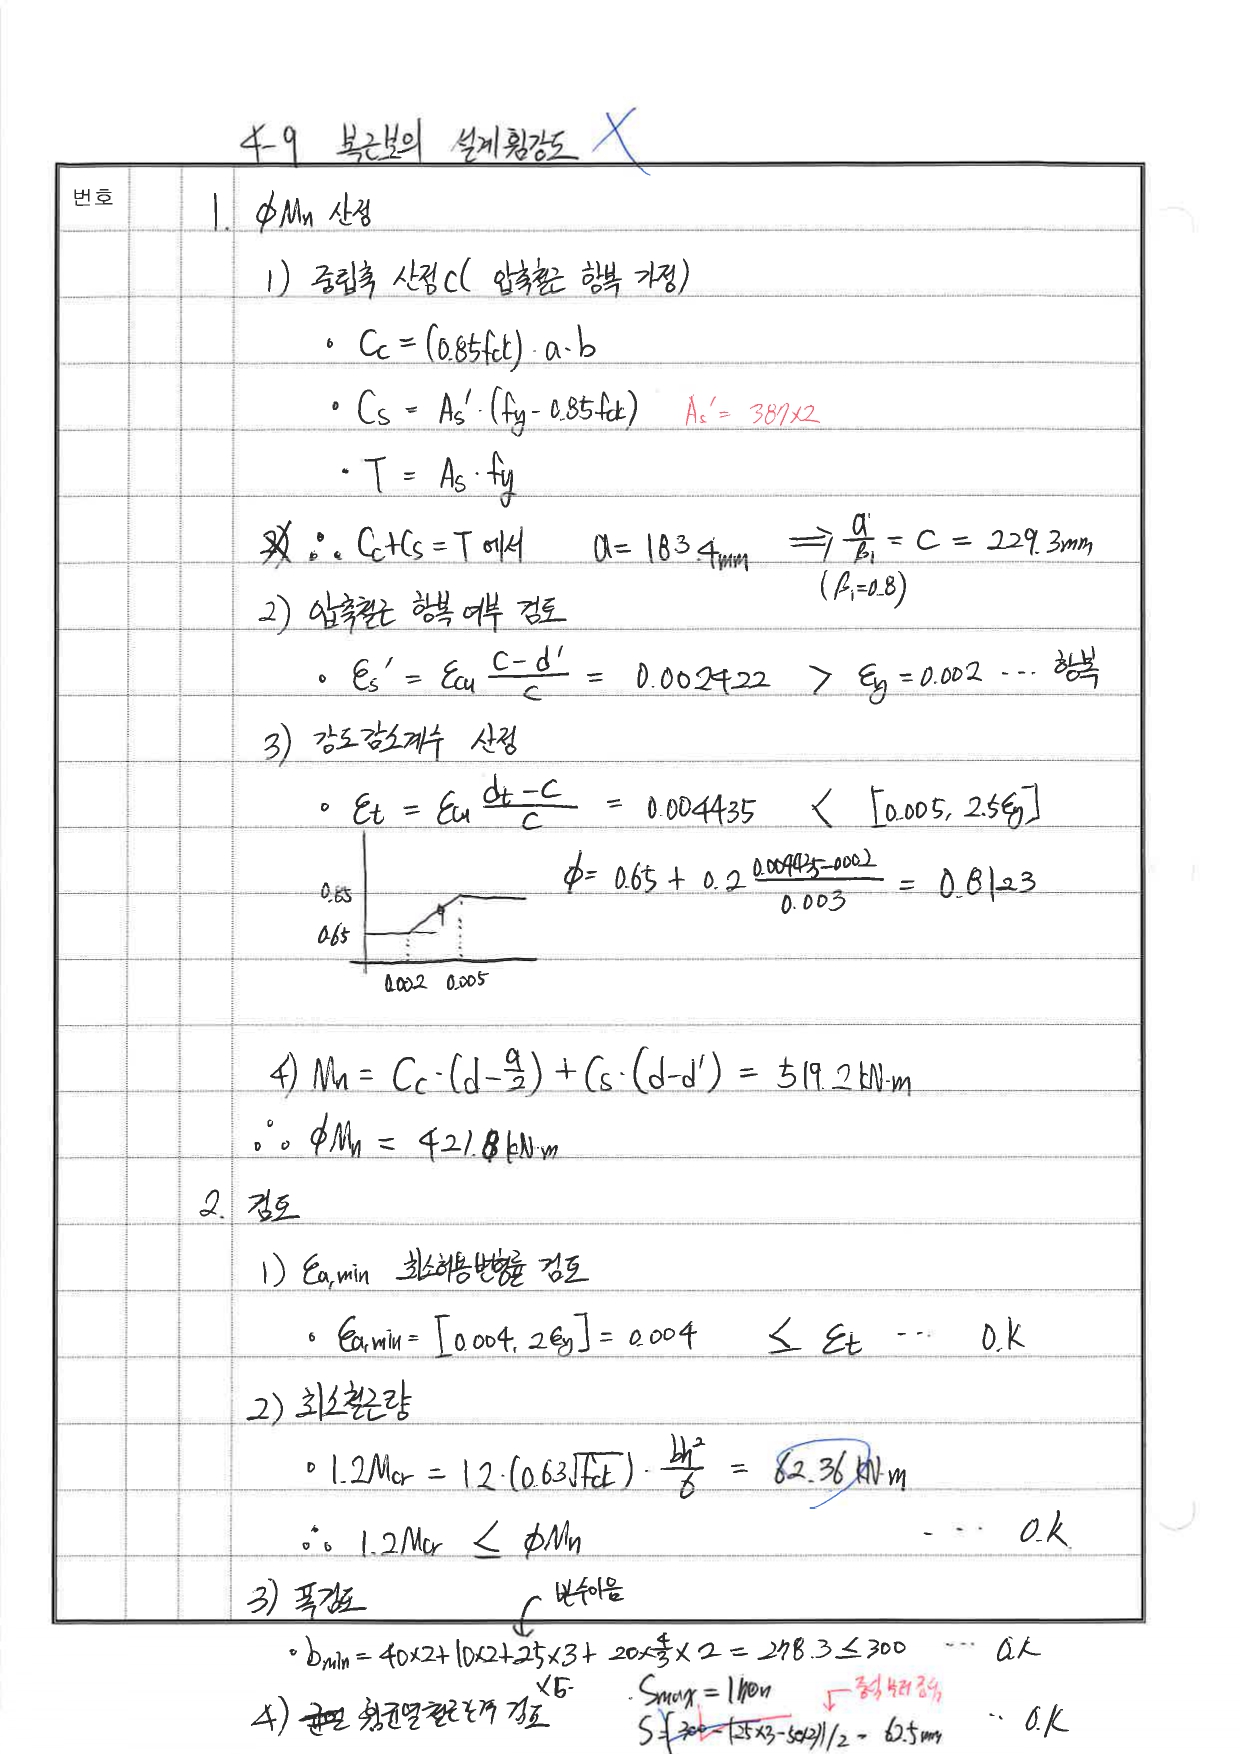 4-9 복근보의 설계휨강도 X
번호
1. ϕMn 산정
1) 중립축 산정 C ( 압축철근 항복 가정)
• Cc = (0.85fck)·a·b
• Cs = As'·(fy - 0.85fck) As' = 387×2
• T = As·fy
∴ Cc+Cs = T 에서 a = 183.4mm ⇒ a/β1 = C = 229.3mm
(β1=0.8)
2) 압축철근 항복 여부 검토
• εs' = εcu (c-d')/c = 0.002422 > εy = 0.002 ... 항복
3) 강도감소계수 산정
• εt = εcu (dt-c)/c = 0.004435 < [0.005, 2.5εy]
ϕ = 0.65 + 0.2 (0.004435-0.002)/0.003 = 0.8123
0.85
0.65
0.002 0.005
4) Mn = Cc·(d-a/2) + Cs·(d-d') = 519.2 kN·m
∴ ϕMn = 421.8 kN·m
2. 검토
1) εa,min 최소허용변형률 검토
• εa,min = [0.004, 2εy] = 0.004 ≤ εt ... O.K
2) 최소철근량
• 1.2Mcr = 1.2·(0.63√fck)·bh²/6 = 62.36 kN·m
∴ 1.2Mcr ≤ ϕMn ... O.K
3) 폭검토
• bmin = 40×2+10×2+25×3+20×4/3×2 = 278.3 ≤ 300 ... O.K
4) 휨균열철근간격 검토
Smax =
S = [300 - (25×3-50×2)]/2 = 62.5mm ... O.K